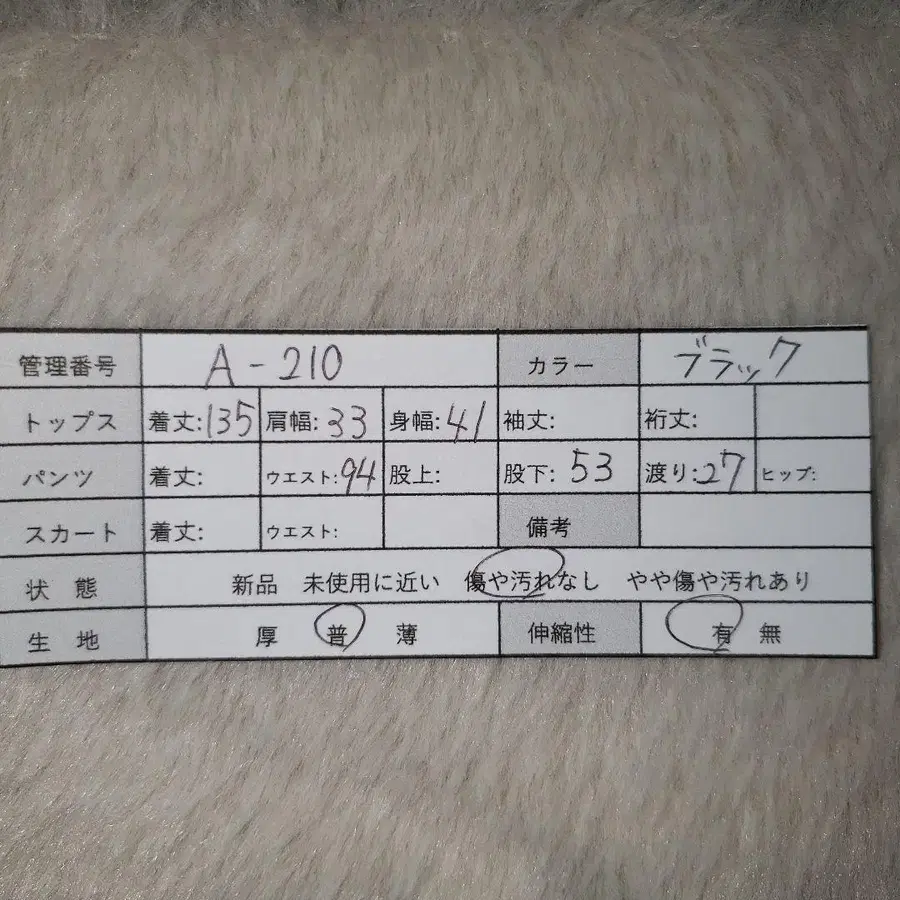 管理番号 A-210 カラー ブラック
トップス 着丈:135 肩幅:33 身幅:41 袖丈: 裄丈:
パンツ 着丈: ウエスト:94 股上: 股下:53 渡り:27 ヒップ:
スカート 着丈: ウエスト: 備考
状態 新品 未使用に近い 傷や汚れなし やや傷や汚れあり
生地 厚 普 薄 伸縮性 有 無